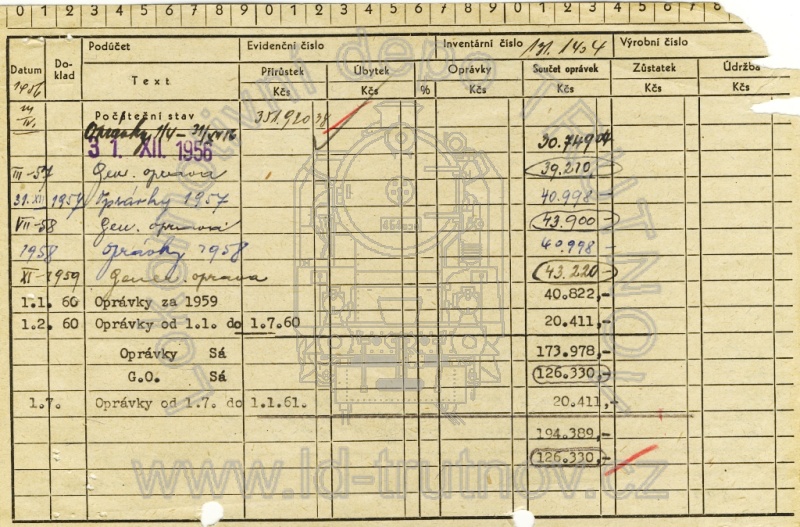 0 1 2 3 4 5 6 7 8 9 0 1 2 3 4 5 6 7 8 9 0 1 2 3 4 5 6 7 8
Datum 1956 Doklad Podúčet Evidenční číslo Inventární číslo 131.1404 Výrobní číslo
Text Přírůstek Úbytek % Oprávky Součet oprávek Zůstatek Údržba
Kčs Kčs Kčs Kčs Kčs Kčs
Počáteční stav 351.920 38
Oprávky 30.749 04
31. XII. 1956
III-57 Gen. oprava 39.210,-
31.XII 1957 Oprávky 1957 40.998,-
VII-58 Gen. oprava 43.900,-
1958 Oprávky 1958 40.998,-
XI-1959 Gener. oprava 43.220,-
1.1. 60 Oprávky za 1959 40.822,-
1.2. 60 Oprávky od 1.1. do 1.7.60 20.411,-
Oprávky Sá 173.978,-
G.O. Sá 126.330,-
1.7. Oprávky od 1.7. do 1.1.61. 20.411,-
194.389,-
126.330,-
Lokomotivní depo TRUTNOV
www.ld-trutnov.cz